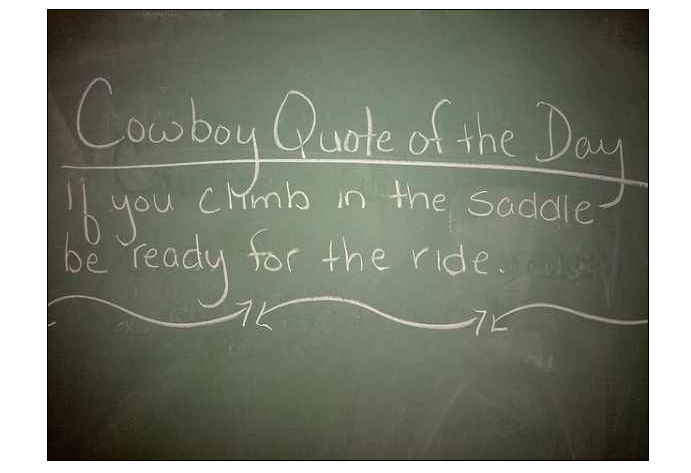 Cowboy Quote of the Day
If you climb in the saddle
be ready for the ride.